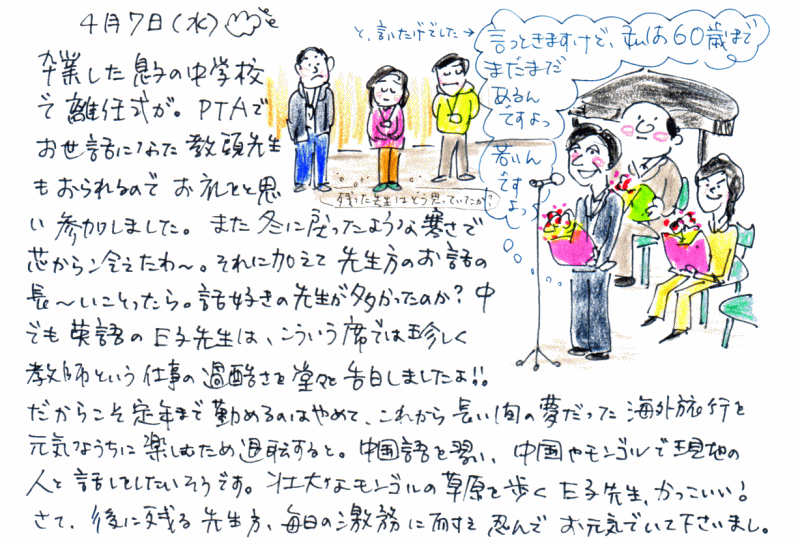 4月7日(水)
と、言いたげでした→
言っときますけど、私は60歳まで
まだまだ
あるん
ですよっ
若いん
ですよっ
残った先生はどう思っていたか?
卒業した息子の中学校
で離任式が。PTAで
お世話になった教頭先生
もおられるのでお礼をと思
い参加しました。また冬に戻ったような寒さで
芯から冷えたわ〜。それに加えて先生方のお話の
長〜いことったら。話好きの先生が多かったのか?中
でも英語のE子先生は、こういう席では珍しく
教師という仕事の過酷さを堂々と告白しましたよ!!
だからこそ定年まで勤めるのはやめて、これから長い間の夢だった海外旅行を
元気なうちに楽しむため退転すると。中国語を習い、中国やモンゴルで現地の
人と話しをしたいそうです。壮大なモンゴルの草原を歩くE子先生、かっこいい!
さて、後に残る先生方、毎日の激務に耐え忍んでお元気でいて下さいまし。